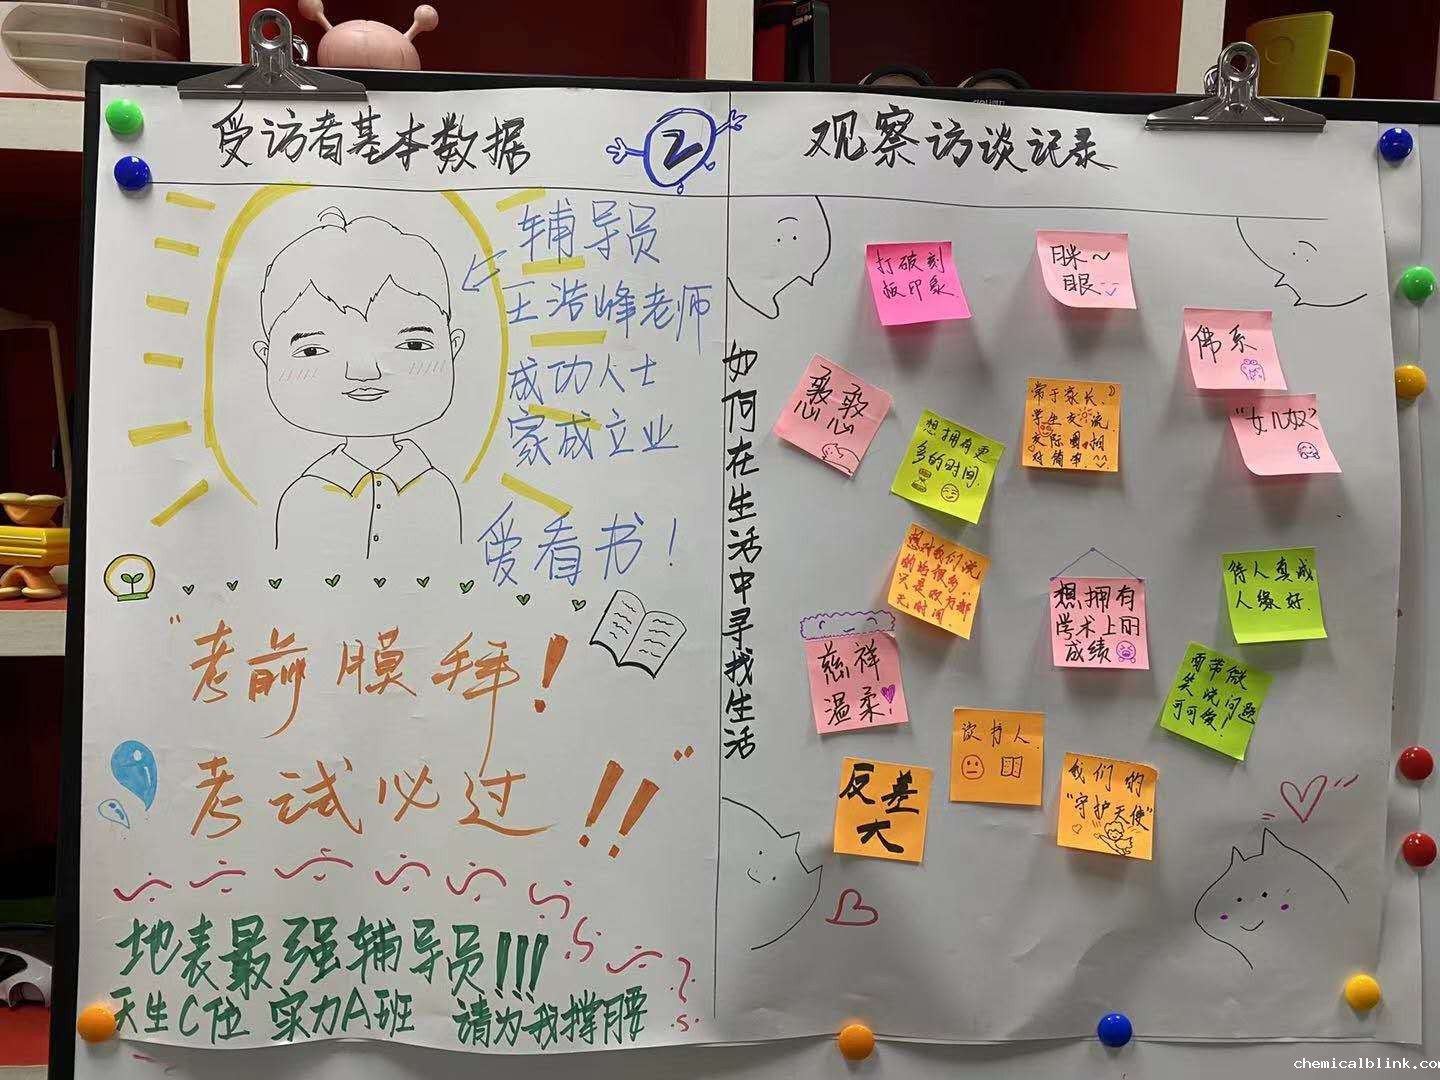 受访者基本数据
2
观察访谈记录
辅导员
王浩峰老师
成功人士
家成立业
爱看书！
"考前膜拜！
考试必过！！"
地表最强辅导员!!!
天生C位 实力A班 请为我撑腰
如何在生活中寻找生活
打破刻
板印象
眯～
眼
佛系
"女儿奴"
忍忍
心心
想拥有更
多的时间.
常于家长、
学生交流
交际圈相
对简单.
想对我们说
的话很多
只是双方都
无时间.
想拥有
学术上的
成绩
待人真诚
人缘好.
慈祥
温柔!
面带微
笑说问题
可可爱!
读书人.
反差
大
我们的
"守护天使"
chemicalblink.com